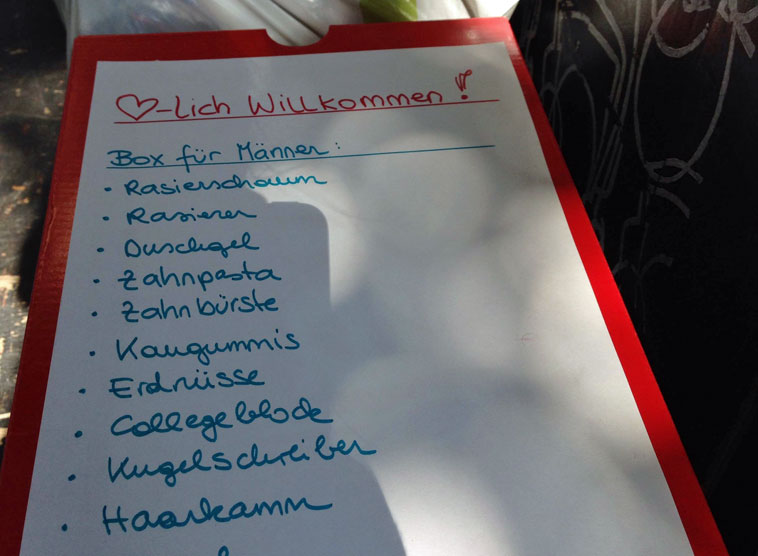 ♡-lich Willkommen!
Box für Männer:
• Rasierschaum
• Rasierer
• Duschgel
• Zahnpasta
• Zahnbürste
• Kaugummis
• Erdnüsse
• Collegeblock
• Kugelschreiber
• Haarkamm